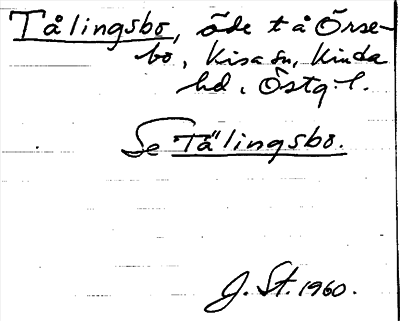 Tålingsbo, öde t å Örse-
bo, Kisa sn, Kinda
hd, Östg. l.
Se Tålingsbo.
J. St. 1960.